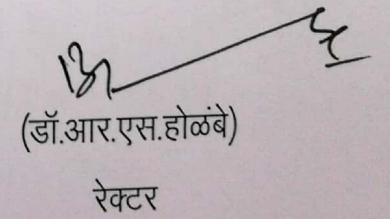 (डॉ.आर.एस.होळंबे)
रेक्टर